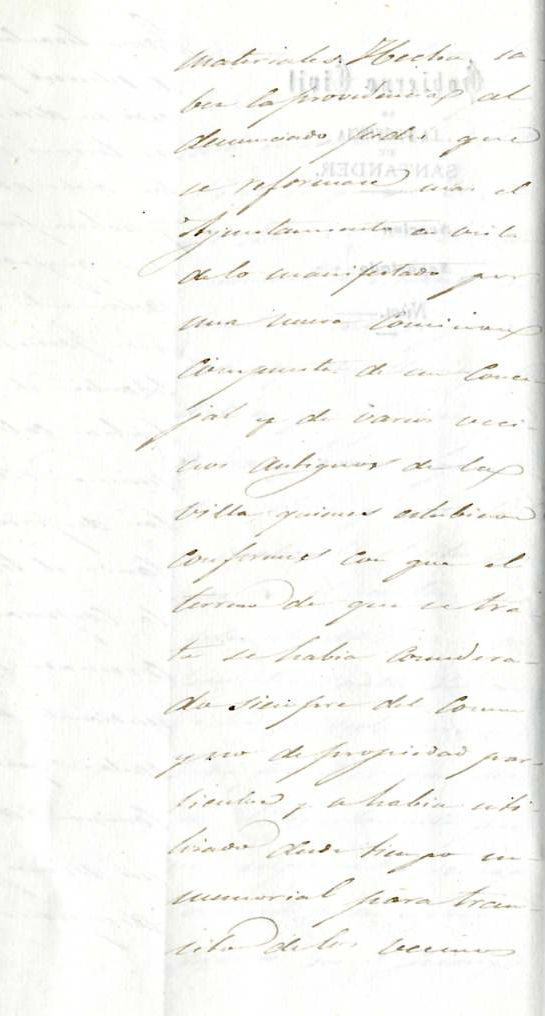 materiales. Hecha sa-
ber la providencia al
denunciado pidió que
se reformase mas el
Ayuntamiento a vista
de lo manifestado por
una nueva Comision
compuesta de un Conce-
jal y de varios veci-
nos antiguos de la
Villa quienes estubieron
conformes con que el
terreno de que se tra-
ta se habia considera-
do siempre del Comun
y no de propiedad par-
ticular y se habia uti-
lizado desde tiempo in-
memorial para tran-
sito de los vecinos
Gobierno Civil
DE
LA PROVINCIA
DE
SANTANDER.
Núm.